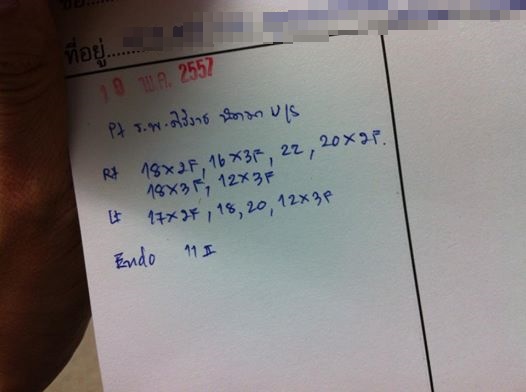 ชื่อ....
ที่อยู่........
19 พ.ค. 2557
Pt ร.พ.ศิริราช นัดมา U/S
Rt 18x2F, 16x3F, 22, 20x2F.
18x3F, 12x3F
Lt 17x2F, 18, 20, 12x3F
Endo 11 II